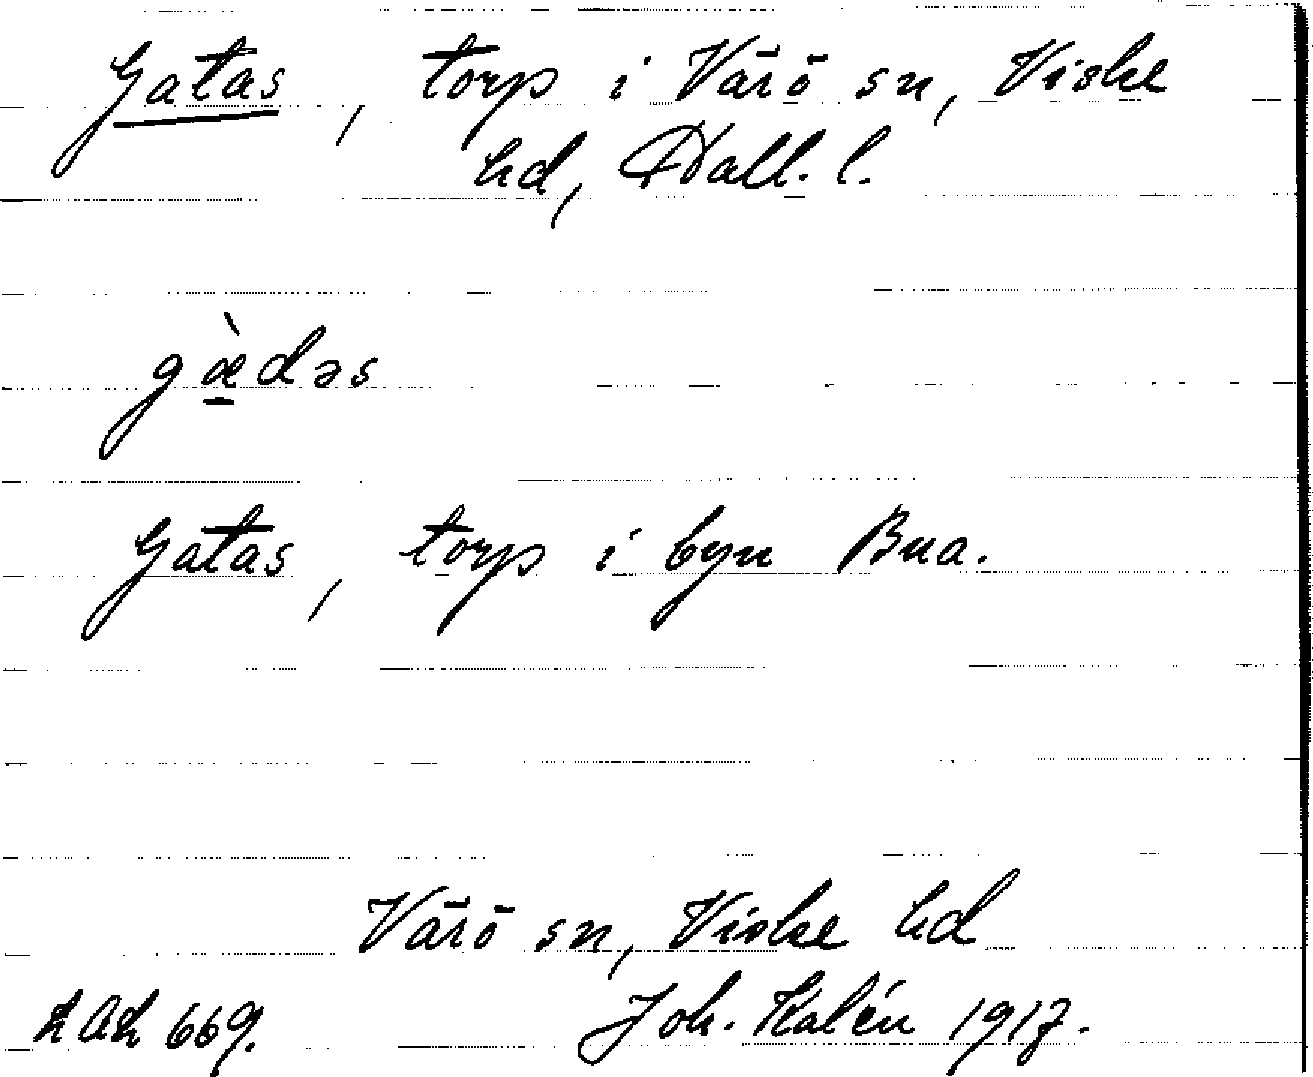 Gatas, torp i Värö sn, Viske
hd, Hall. l.
gæ̠̀dəs
Gatas, torp i byn Bua.
Värö sn, Viske hd
669. Joh. Kalén 1917.